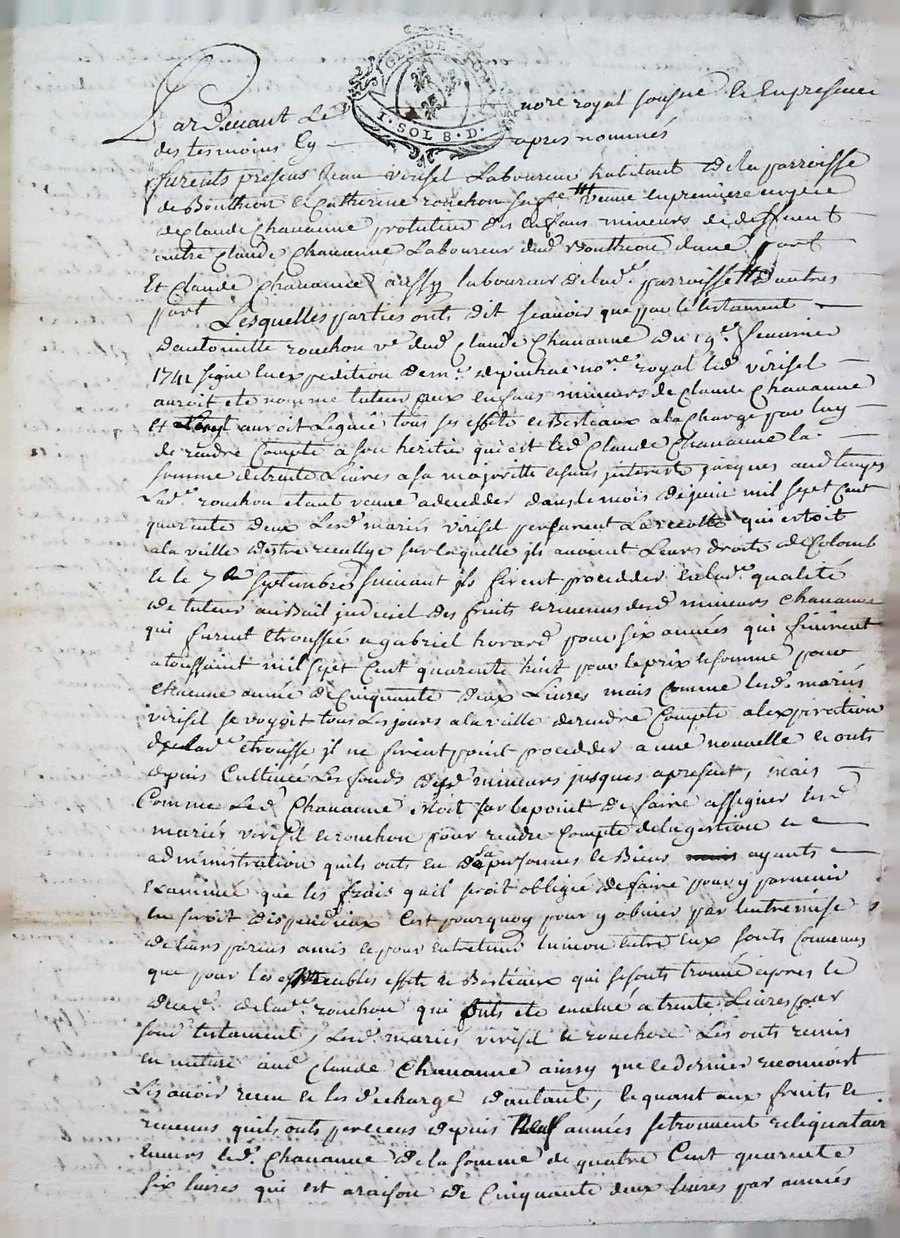 GEN DE
1 · SOL 8 · D ·
Pardevant Le nore royal sousné & En presence
des tesmoins Cy apres nommés
furents presens Jean virisel Laboureur habitant de la parroisse
de Bouthion & Catherine rouchon sa femme
de Claude Chavanne protutrice des Enfans mineurs de deffunt
autre Claude Chavanne Laboureur dud Bouthion dune part
Et Claude Chavanne aussy laboureur de lade parroisse d'autres
part Lesquelles parties onts dit scavoir que par le testament
dantoinette rouchon ve dud Claude Chavanne du 19e feuvrier
1741 signé En expedition de me nore royal led virisel
auroit été nommé tuteur aux enfans mineurs de Claude Chavanne
et auroit Légué tous ses effets & Bestiaux a la charge par luy
de rendre Compte a son héritier qui est led Claude Chavanne la
somme de trente Livres a sa majoritté & sans interest jusques aud temps
Lade rouchon etant venue a decedder dans le mois de juin mil sept Cent
quarante deux Lesd mariés virisel perçurent La recolte qui estoit
a la veille destre recullye sur laquelle ils avoient Leurs droits de Colomb
& le 7e septembre suivant ils firent procedder en lade qualité
de tuteur au Bail judiciel des fruits & revenus desd mineurs Chavanne
qui furent etroussé a gabriel horard pour six années qui finirent
a toussaint mil sept Cent quarente huit pour le prix & somme pour
chacune année de Cinquante deux Livres mais Comme lesd mariés
virisel se voyoit tous Les jours a la veille de rendre Compte a lexpiration
de lade etrousse, il ne firent point procedder a une nouvelle & onts
depuis Cultivé Les fonds desd mineurs jusques apresent, mais
Comme Led Chavanne etoit sur le point de faire assigner lesd
mariés virisel & rouchon pour rendre Compte de la gestion &
administration quils onts eu de sa personnes & Biens ayants
Examiné que les frais quil seroit obligié de faire pour y parvenir
luy seroit dispendieux Cest pourquoy pour y obvier par lentremise
de leurs parens amis & pour entretenir lunion entre Eux sonts Convenus
que pour les meubles effets & Bestiaux qui se sonts trouvé apres le
deces de lade rouchon qui onts eté evalué a trente Livres par
sond testament, Lesd mariés virisel & rouchon Les onts remis
en nature aud Claude Chavanne aissy que ce dernier reconnoist
Les avoir receu & les décharge d'autant, & quant aux fruits &
revenus quils onts perceus depuis Neuf années se trouvent reliquataire
Envers led Chavanne de la somme de quatre Cent quarente
six livres qui est a raison de Cinquante deux livres par années